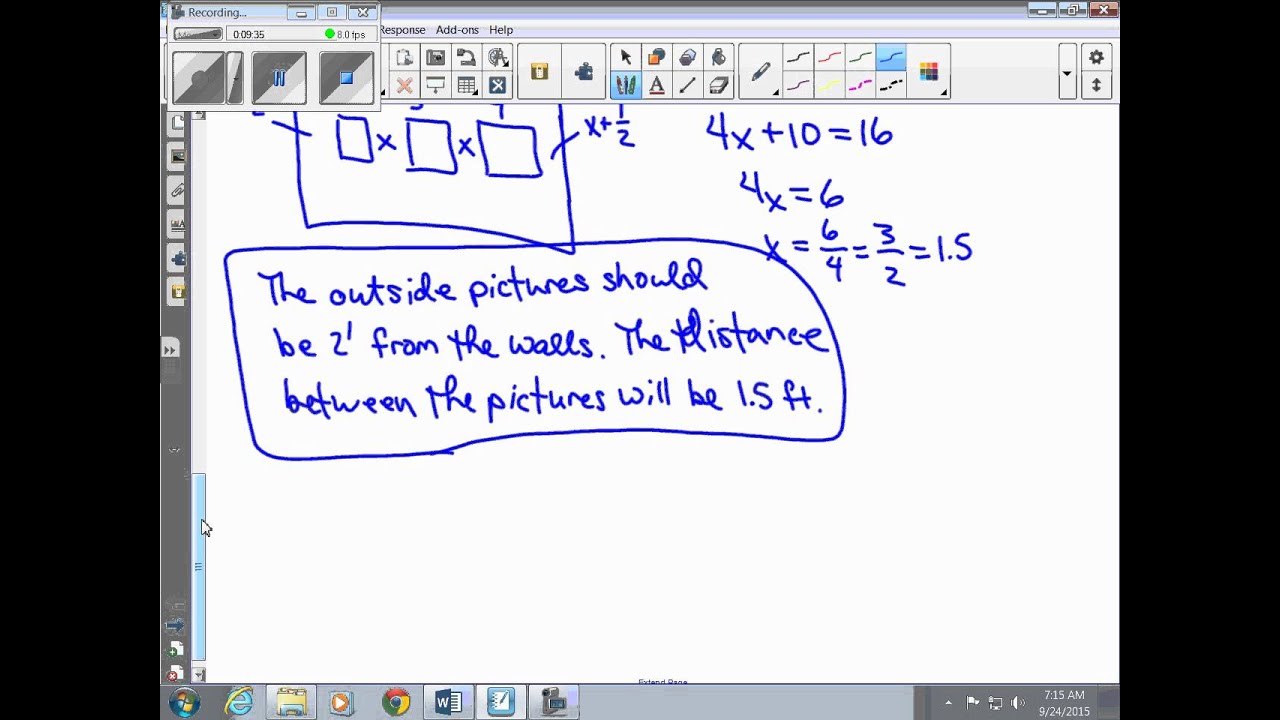 Recording...
0:09:35
8.0 fps
Response Add-ons Help
x x x+1/2
4x+10=16
4x=6
x=6/4=3/2=1.5
The outside pictures should
be 2' from the walls. The distance
between the pictures will be 1.5 ft.
Extend Page
7:15 AM
9/24/2015